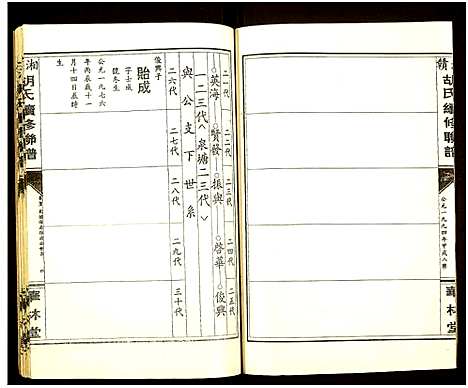 贛胡氏續修聯譜
公元一九九四年甲戌八修
華林堂
二一代
二二代
二三代
二四代
二五代
○英海——○賢發——○振興——○啓華——○俊興
一二三代︿泉塘二三代﹀
與公支下世系
二六代
二七代
二八代
二九代
三十代
俊興子
貽成
字士成
號冬生
公元一九七六
年丙辰歲十一
月十四日辰時
生
湘胡氏續修聯譜
華林堂